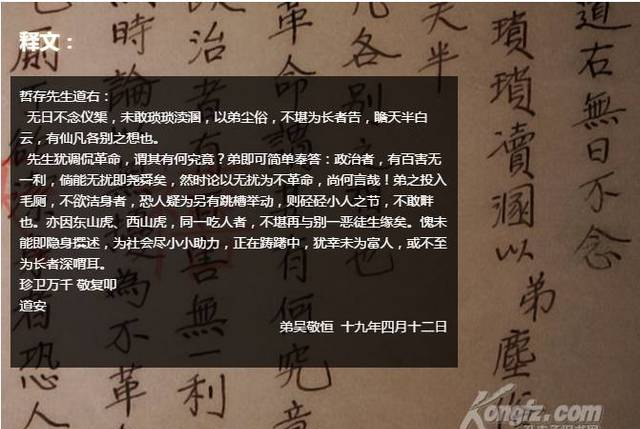 释文：
哲存先生道右：
无日不念仪榘，未敢琐琐渎溷，以弟尘俗，不堪为长者告，瞻天半白
云，有仙凡各别之想也。
先生犹调侃革命，谓其有何究竟？弟即可简单奉答：政治者，有百害无
一利，倘能无扰即尧舜矣，然时论以无扰为不革命，尚何言哉！弟之投入
毛厕，不欲洁身者，恐人疑为另有跳槽举动，则硁硁小人之节，不敢黼
也。亦因东山虎、西山虎，同一吃人者，不堪再与别一恶徒生缘矣。愧未
能即隐身撰述，为社会尽小小助力，正在踌躇中，犹幸未为富人，或不至
为长者深喟耳。
珍卫万千 敬复叩
道安
弟吴敬恒 十九年四月十二日
道右無日不念
瑣瑣瀆溷以弟塵俗
天半
凡各别之想也
革命謂其有何究竟
政治者有百害無一利
時論以無擾為不革
毛厠不欲潔身者恐人
Kongfz.com